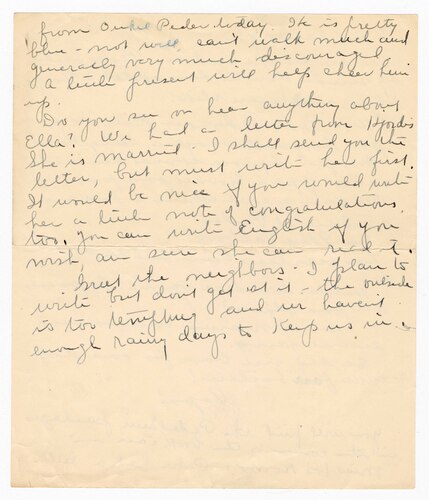 from Onkel Peder today. He is pretty
blue - not well, can't walk much and
generally very much discouraged.
A little present will help cheer him
up.
Do you see or hear anything about
Ella? We had a letter from Hjordis
She is married. I shall send you the
letter, but must write her first.
It would be nice if you would write
her a little note of congratulations,
too. You can write English if you
wish, am sure she can read it.
Greet the neighbors. I plan to
write but don't get at it - the outside
is too tempting and we haven't
enough rainy days to keep us in.